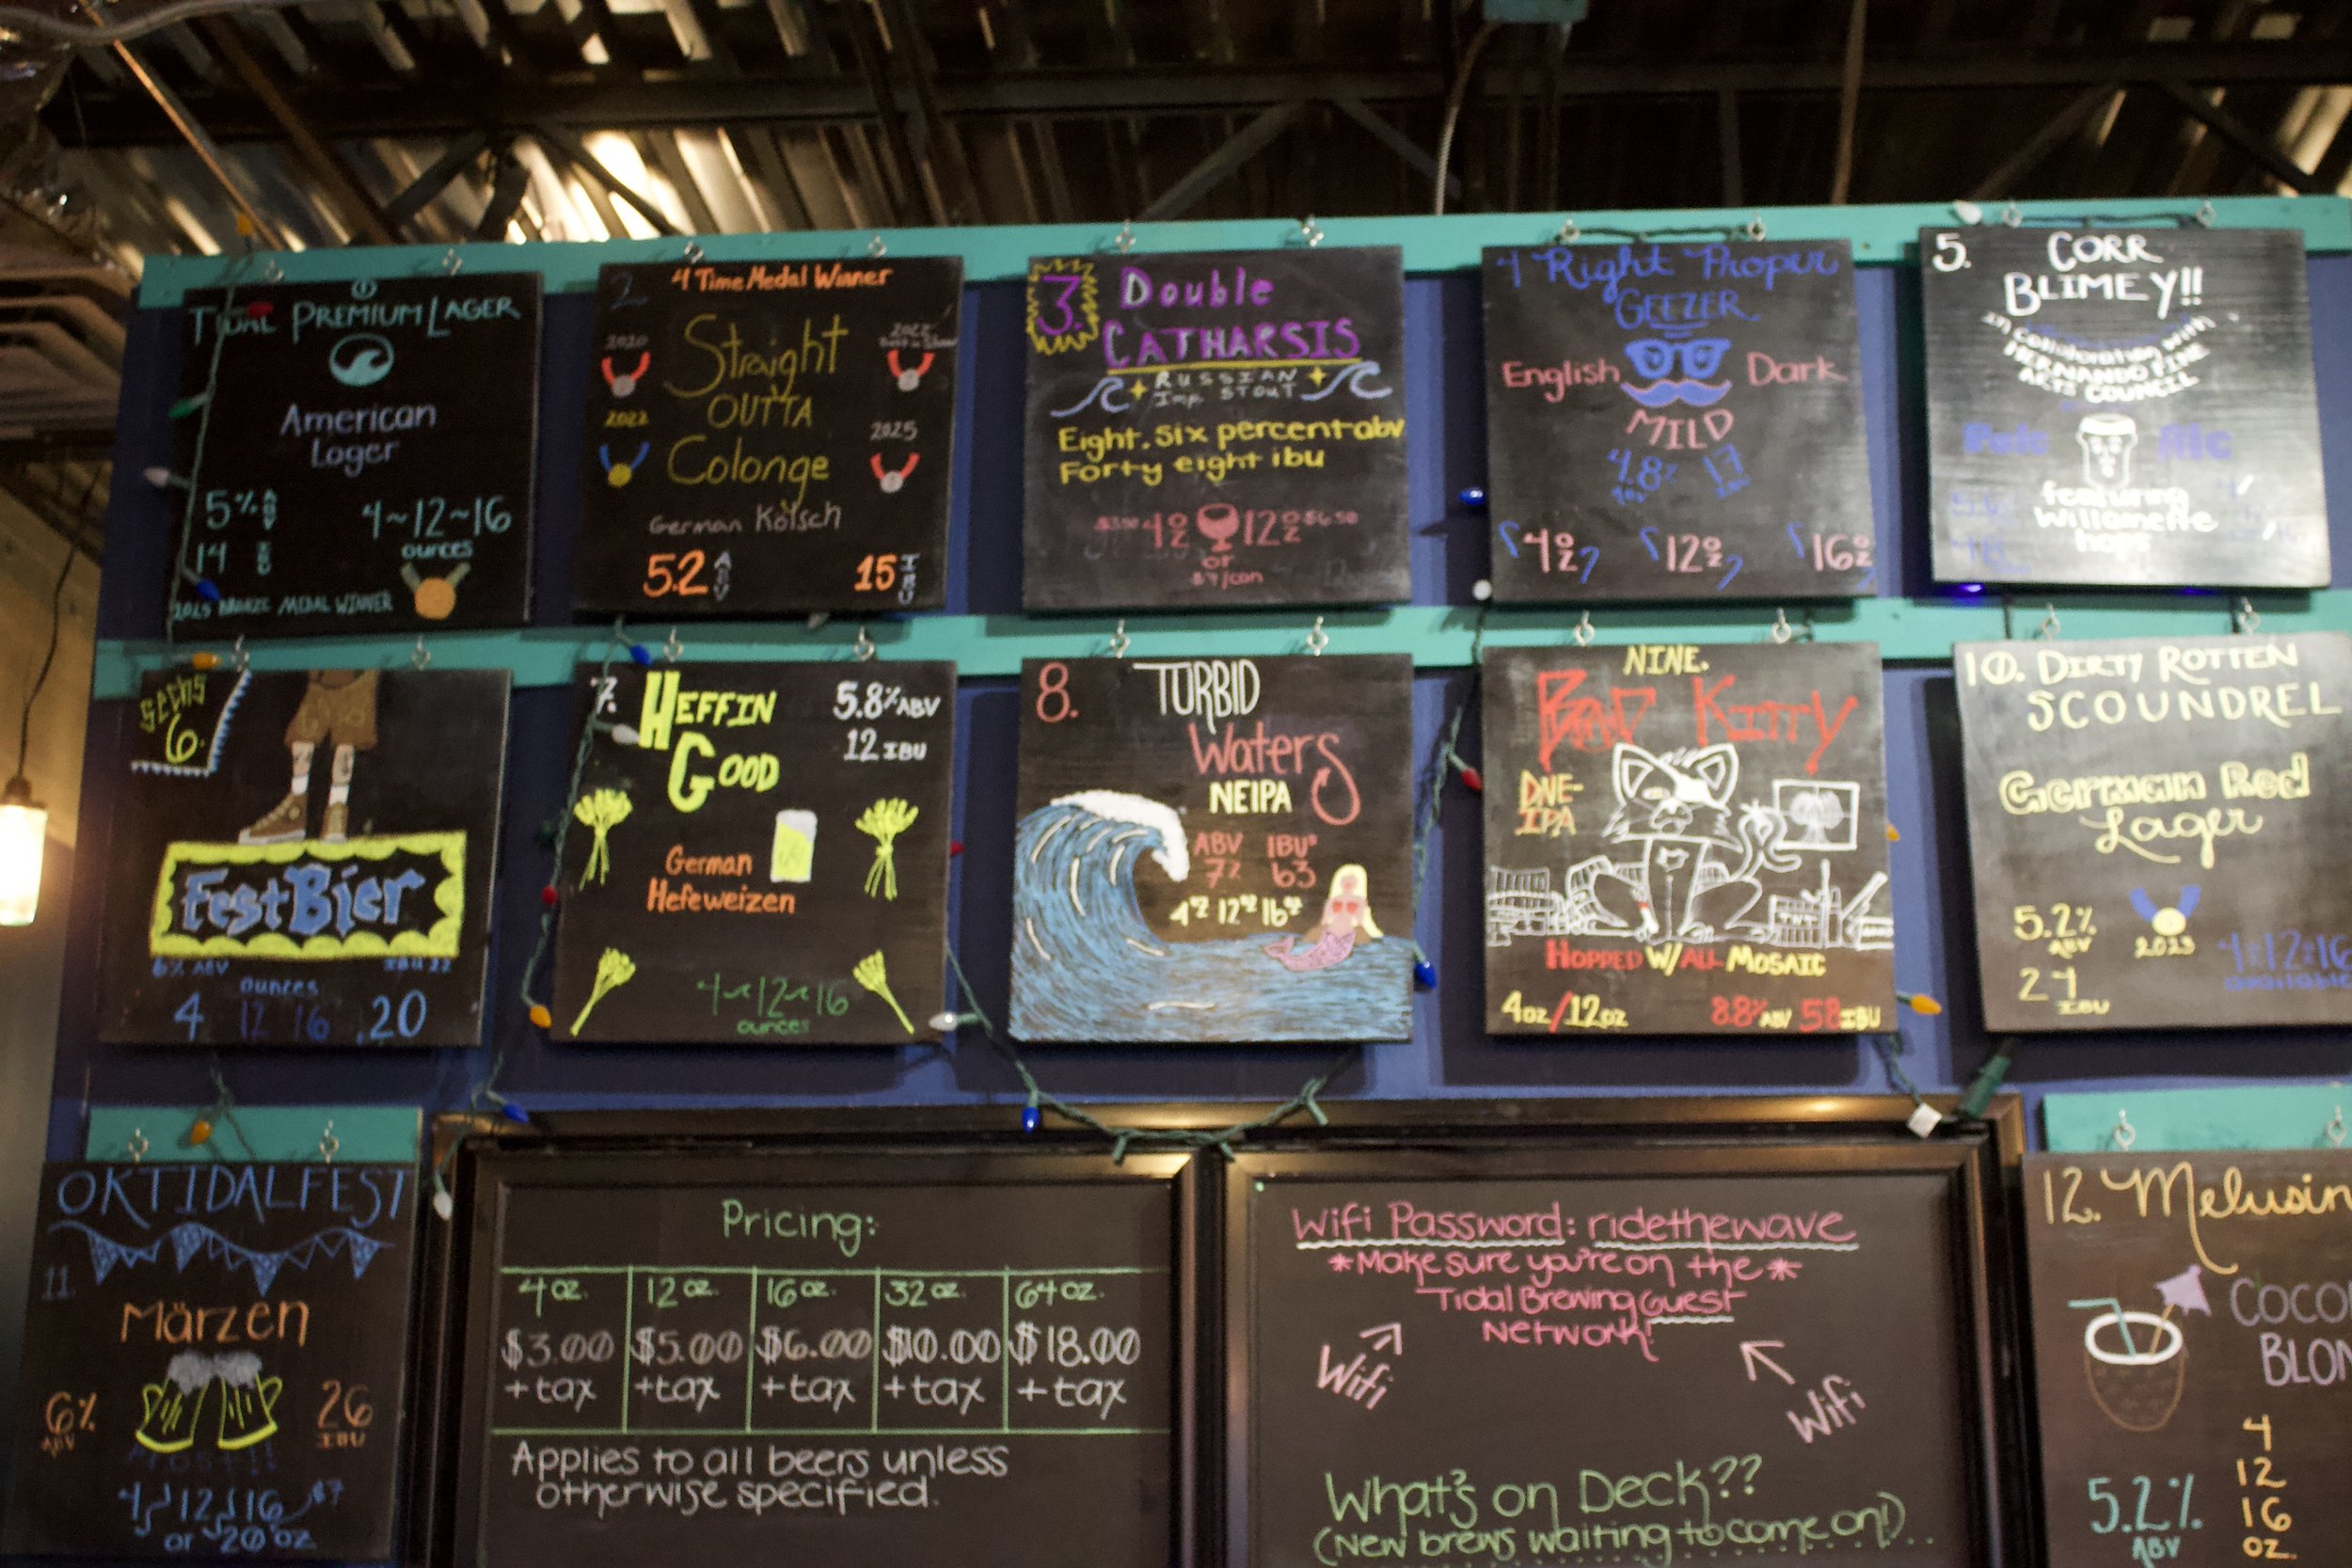 ①
TIDAL PREMIUM LAGER
American
Lager
5% ABV
14 IBU
4~12~16
ounces
2025 BRONZE MEDAL WINNER
2.
4 Time Medal Winner
2020
2022
Straight
OUTTA
Colonge
2022
2025
German Kölsch
5.2 ABV
15 IBU
3.
Double
CATHARSIS
RUSSIAN
Imp. STOUT
Eight.Six percent abv
Forty eight ibu
$3.50 4oz 12oz $6.50
or
$7/can
4 Right Proper
GEEZER
English Dark
MILD
4.8% 17
4oz 12oz 16oz
5. CORR
BLIMEY!!
in collaboration with
HERNANDO FINE
ARTS COUNCIL
Pale Ale
featuring
Willamette
hops
SECHS
6.
FestBier
6% ABV IBU 22
ounces
4 12 16 20
7. HEFFIN
GOOD
5.8% ABV
12 IBU
German
Hefeweizen
4~12~16
ounces
8. TURBID
Waters
NEIPA
ABV IBU's
7% 63
4oz 12oz 16oz
NINE.
BAD KITTY
DNE-
IPA
TNT
HOPPED W/ALL MOSAIC
4oz/12oz 8.8% ABV 58 IBU
10. DIRTY ROTTEN
SCOUNDREL
German Red
Lager
5.2%
ABV
2023
24
IBU
4:12:16
available
OKTIDALFEST
11.
Märzen
6%
ABV
26
IBU
PROST!!
4 12 16 $7
or 20 oz
Pricing:
4 oz. 12 oz. 16 oz. 32 oz. 64 oz.
$3.00 $5.00 $6.00 $10.00 $18.00
+tax +tax +tax +tax +tax
Applies to all beers unless
otherwise specified.
Wifi Password: ridethewave
*Make sure you're on the*
Tidal Brewing Guest
Network!
Wifi
Wifi
What's on Deck??
(New brews waiting to come on!)...
12. Melusin
COCO
BLON
5.2%
ABV
4
12
16
oz